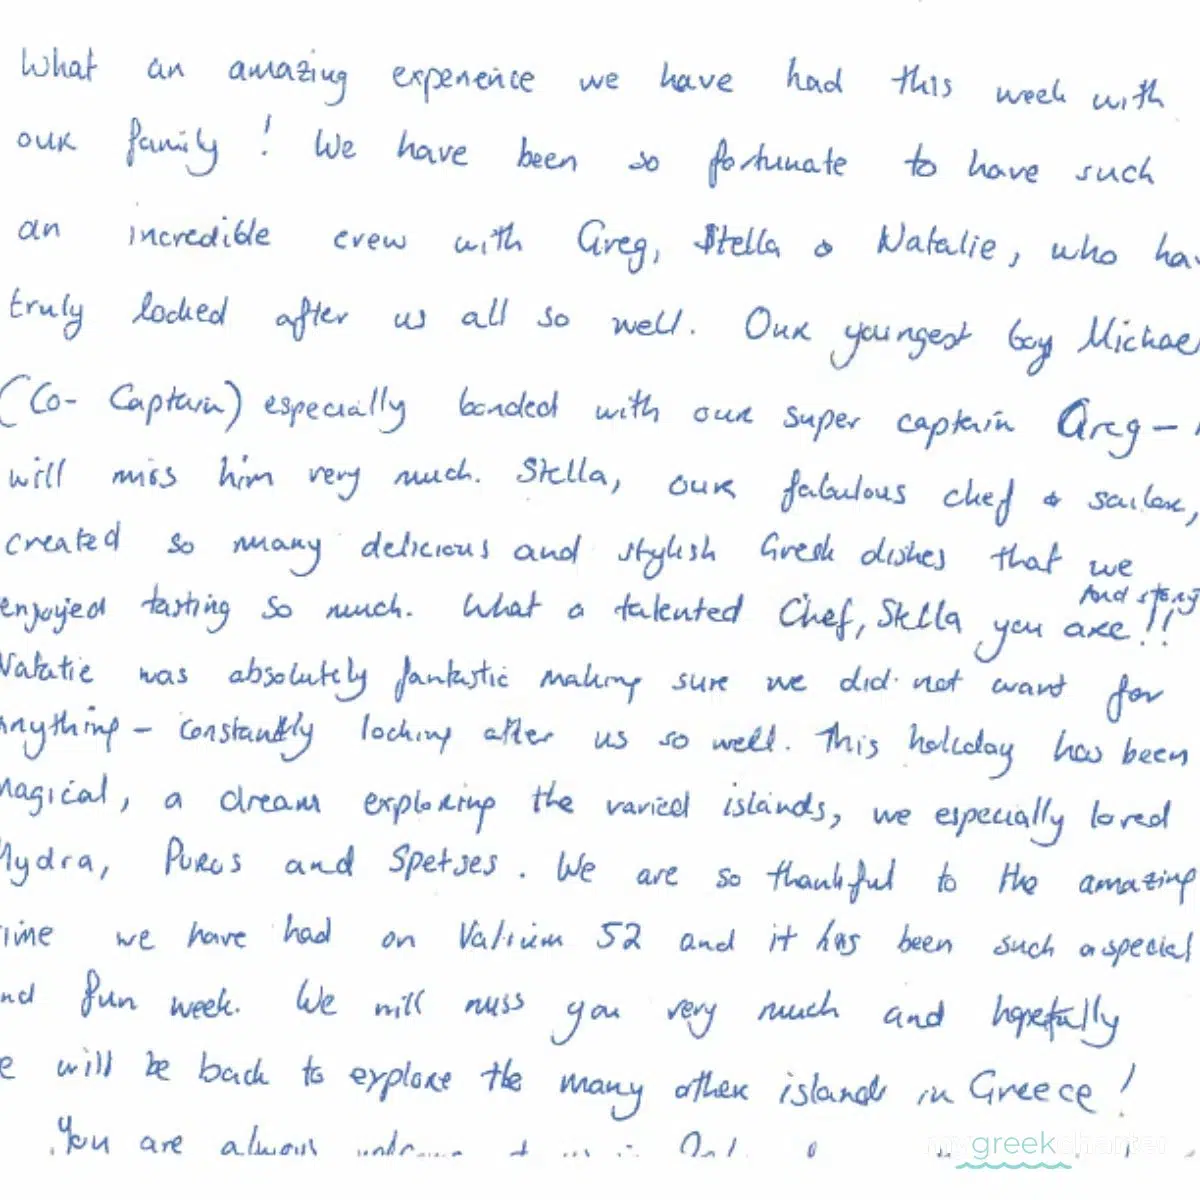 What an amazing experience we have had this week with
our family! We have been so fortunate to have such
an incredible crew with Greg, Stella & Natalie, who hav
truly looked after us all so well. Our youngest boy Michae
(Co- Captain) especially bonded with our super captain Greg –
will miss him very much. Stella, our fabulous chef & sailor,
created so many delicious and stylish Greek dishes that we
And strong
enjoyed tasting so much. What a talented Chef, Stella you are!!
Natalie was absolutely fantastic making sure we did not want for
anything – constantly looking after us so well. This holiday has been
magical, a dream exploring the varied islands, we especially loved
Hydra, Poros and Spetses. We are so thankful to the amazing
time we have had on Valium 52 and it has been such a special
nd fun week. We will miss you very much and hopefully
e will be back to explore the many other islands in Greece!
You are always
my greek charter